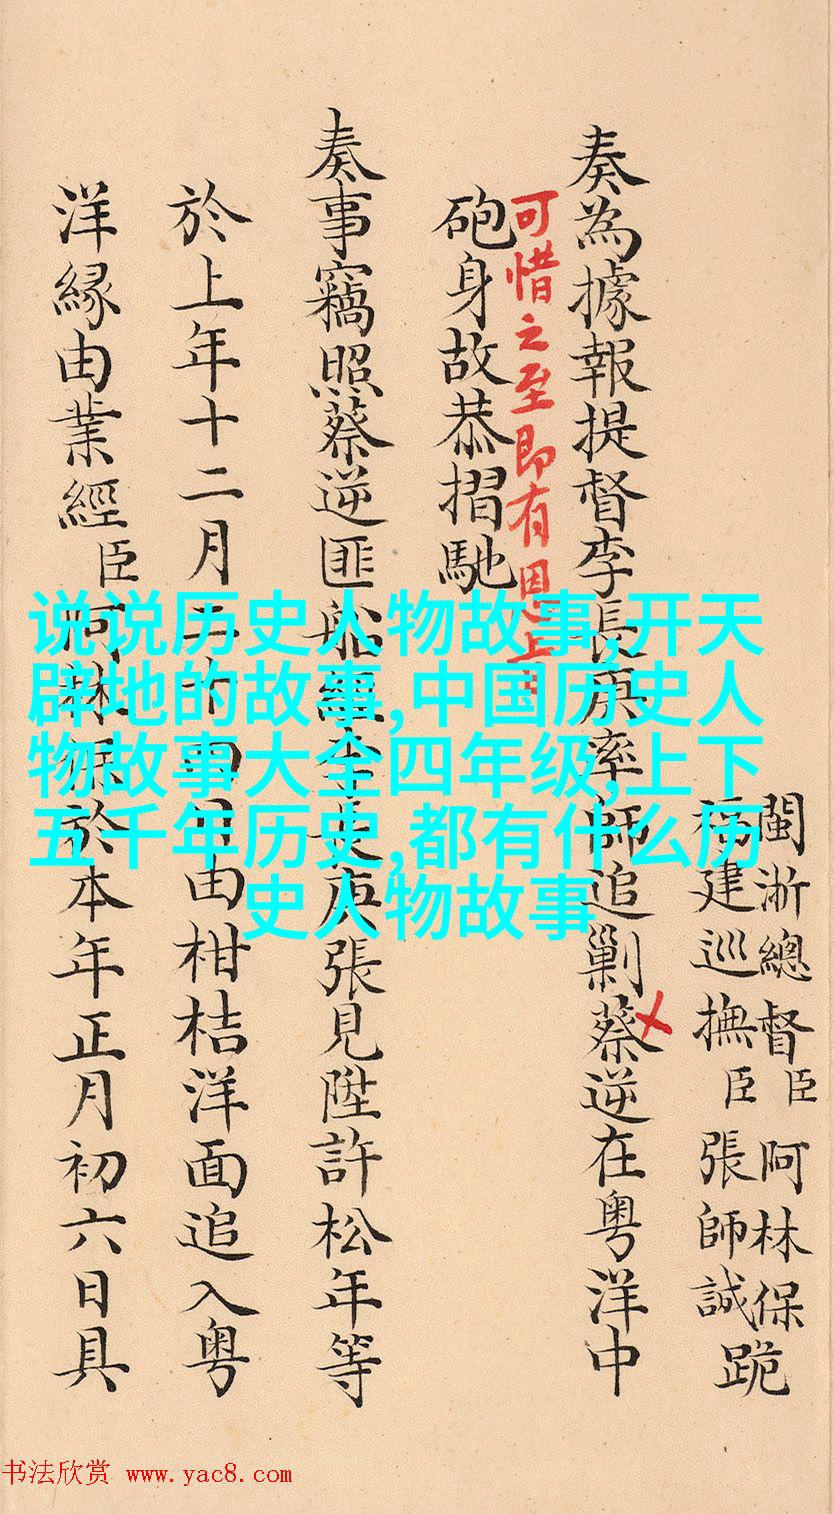 閩浙總督臣阿林保
福建巡撫臣張師誠
跪
奏為據報提督李長庚率師追剿蔡逆在粤洋中
可惜之至即有恩
砲身故恭摺馳
奏事竊照蔡逆匪船經李長庚張見陞許松年等
於上年十二月二十日由柑桔洋面追入粤
洋縁由業經臣阿林保於本年正月初六日具
说说历史人物故事,开天
辟地的故事,中国历史人
物故事大全四年级,上下
五千年历史,都有什么历
史人物故事
书法欣赏 www.yac8.com